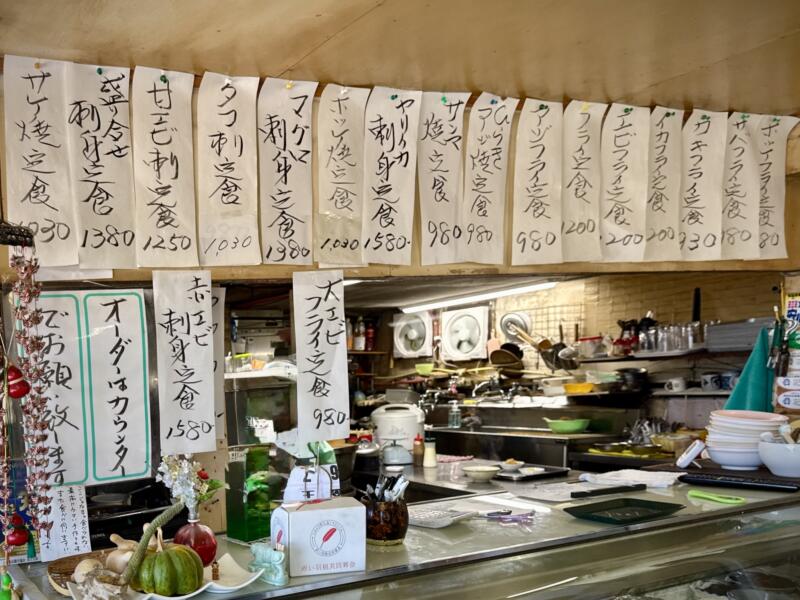 サケ焼定食
1030
盛り合せ
刺身定食
1380
甘エビ刺定食
1250
タコ刺定食
1,030
マグロ
刺身定食
1380
ホッケ焼定食
1,030
ヤリイカ
刺身定食
1580
サンマ
焼定食
980
ひらき
アジ焼定食
980
アジフライ定食
980
フライ定食
1200
エビフライ定食
イカフライ定食
カキフライ定食
930
サバフライ定食
ホッケフライ定食
オーダーはカウンター
でお願い致します
赤エビ
刺身定食
1580
大エビ
フライ定食
980
赤い羽根共同募金